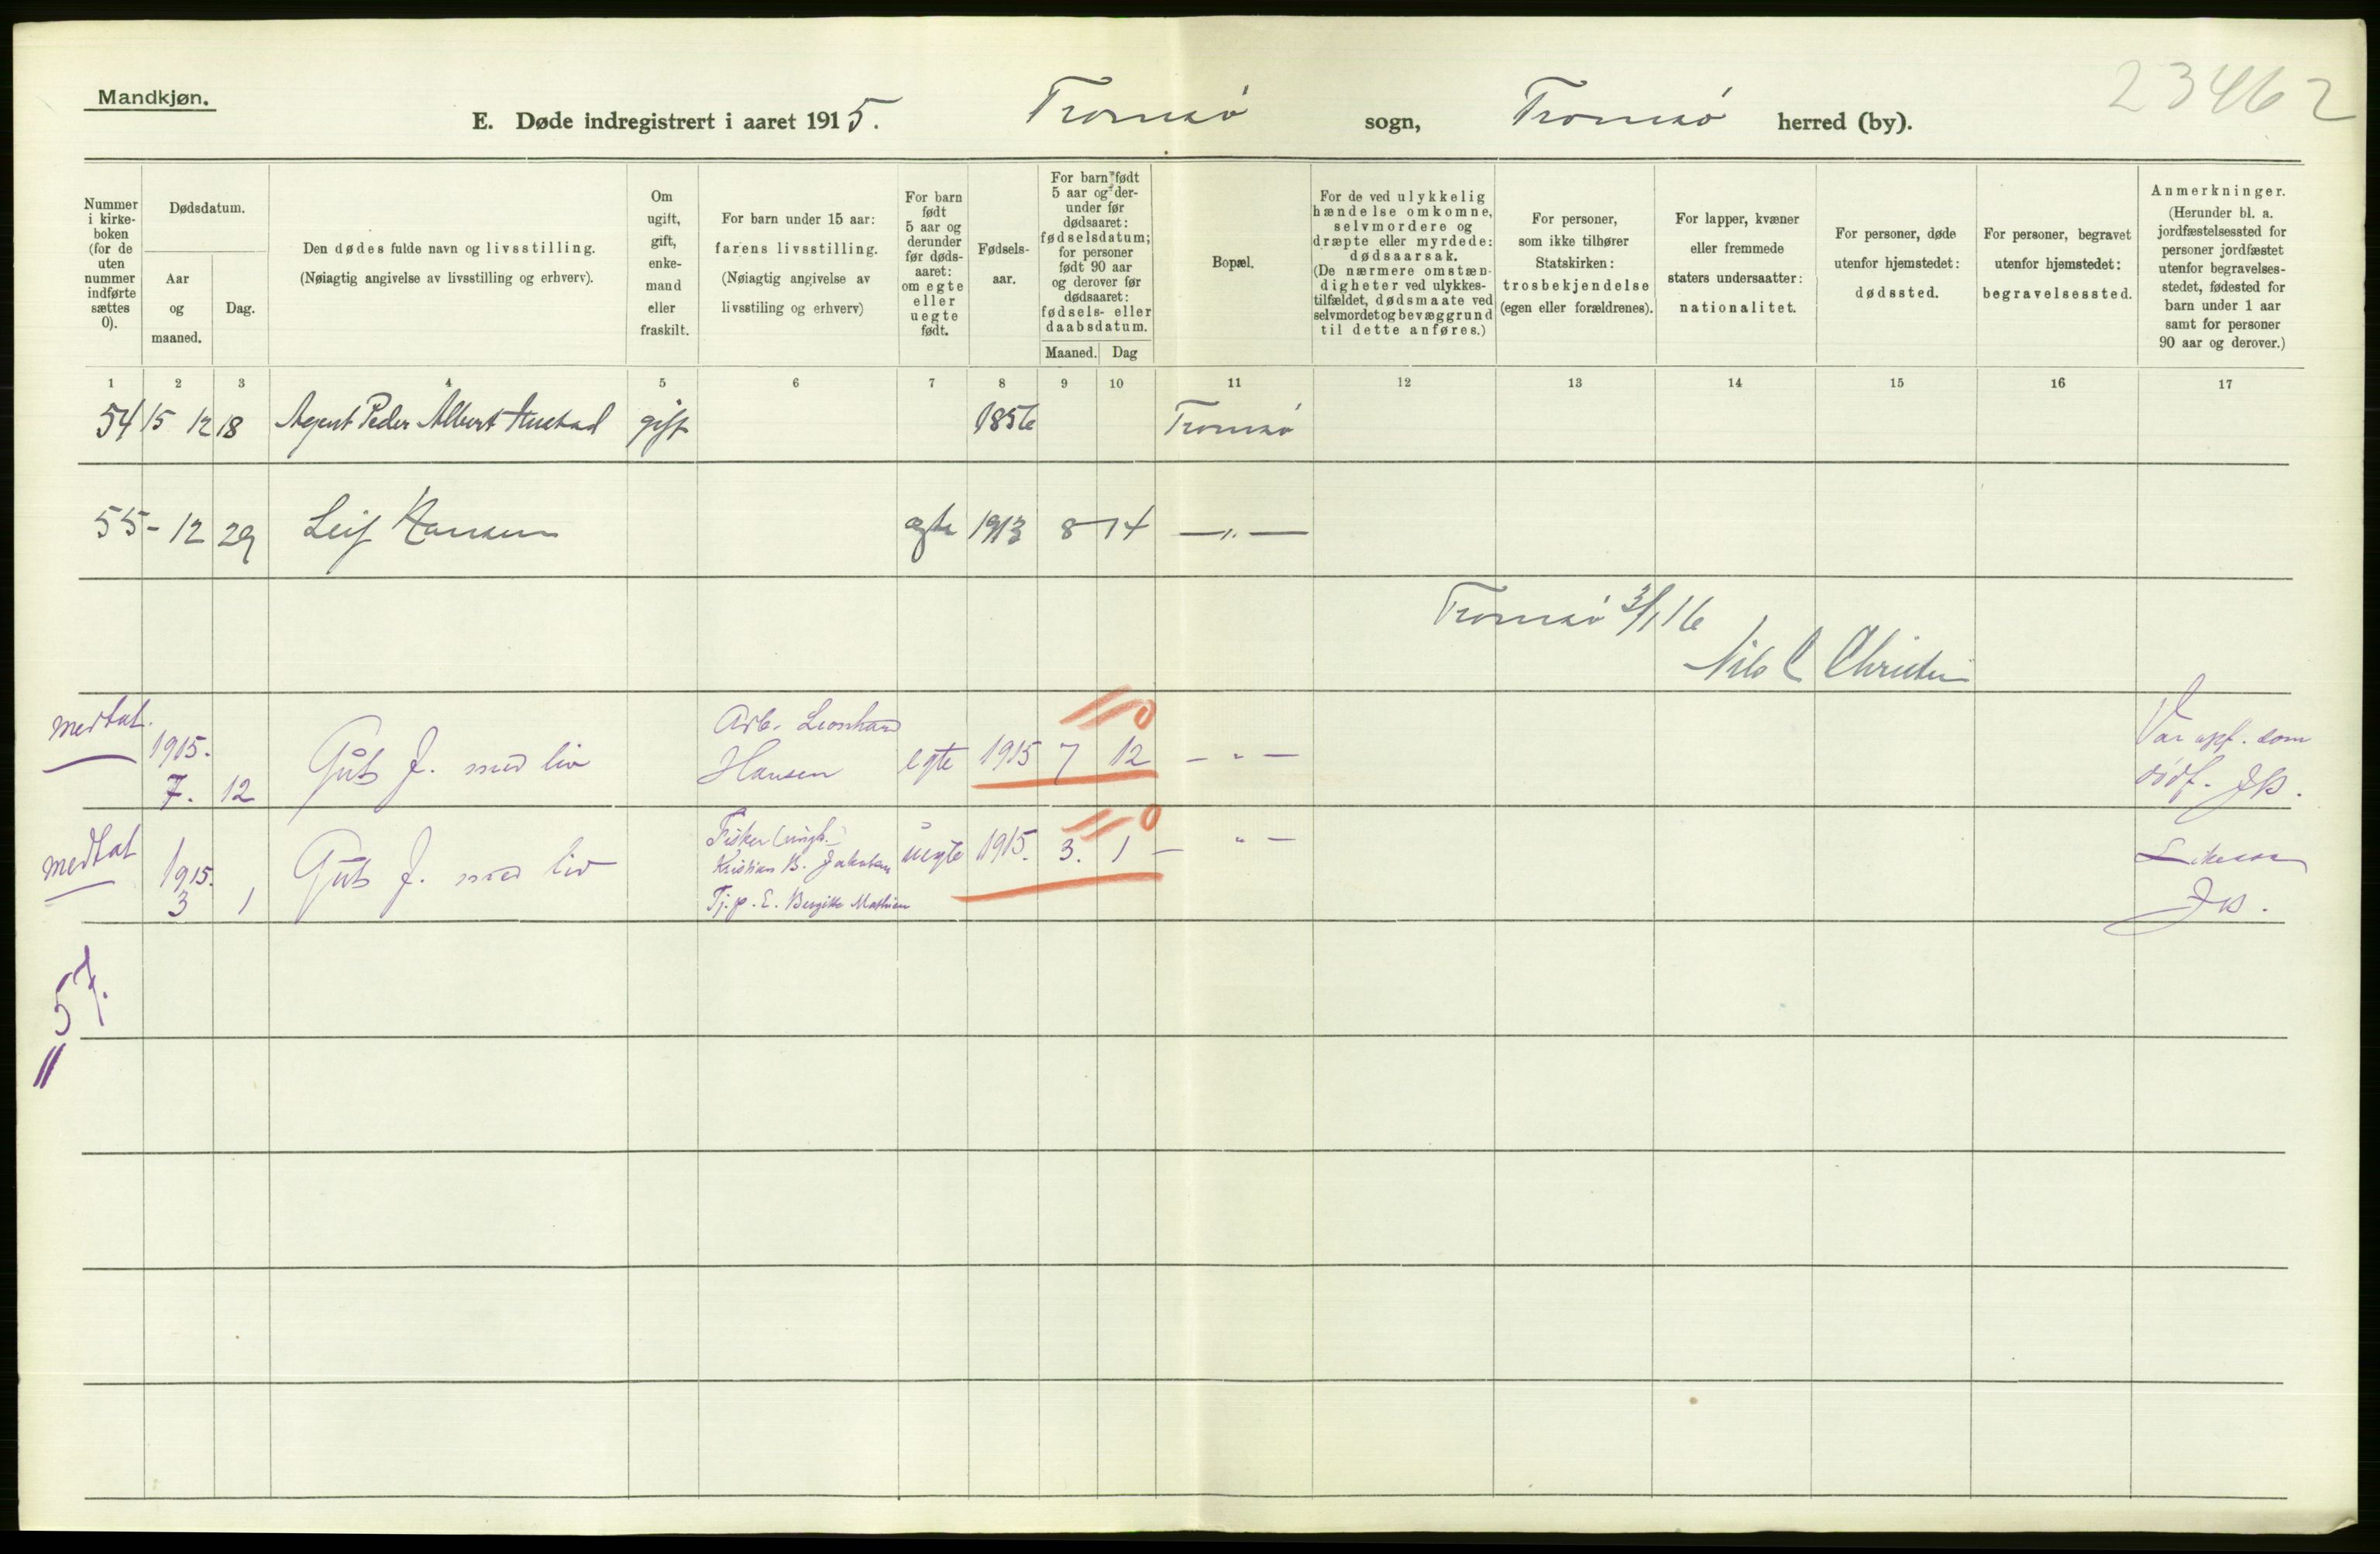 Mandkjøn.
23462
E. Døde indregistrert i aaret 1915. Tromsø sogn, Tromsø herred (by).
Nummer
i kirke-
boken
(for de
uten
nummer
indførte
sættes
0).
Dødsdatum.
Aar
og
maaned.
Dag.
Den dødes fulde navn og livsstilling.
(Nøiagtig angivelse av livsstilling og erhverv).
Om
ugift,
gift,
enke-
mand
eller
fraskilt.
For barn under 15 aar:
farens livsstilling.
(Nøiagtig angivelse av
livsstiling og erhverv)
For barn
født
5 aar og
derunder
før døds-
aaret:
om egte
eller
uegte
født.
Fødsels-
aar.
For barn født
5 aar og der-
under før
dødsaaret:
fødselsdatum;
for personer
født 90 aar
og derover før
dødsaaret:
fødsels- eller
daabsdatum.
Maaned. Dag
Bopæl.
For de ved ulykkelig
hændelse omkomne,
selvmordere og
dræpte eller myrdede:
dødsaarsak.
(De nærmere omstæn-
digheter ved ulykkes-
tilfældet, dødsmaate ved
selvmordet og bevæggrund
til dette anføres.)
For personer,
som ikke tilhører
Statskirken:
trosbekjendelse
(egen eller forældrenes).
For lapper, kvæner
eller fremmede
staters undersaatter:
nationalitet.
For personer, døde
utenfor hjemstedet:
dødssted.
For personer, begravet
utenfor hjemstedet:
begravelsessted.
Anmerkninger.
(Herunder bl. a.
jordfæstelsessted for
personer jordfæstet
utenfor begravelses-
stedet, fødested for
barn under 1 aar
samt for personer
90 aar og derover.)
1 2 3 4 5 6 7 8 9 10 11 12 13 14 15 16 17
54 15 12 18 Agent Peder Albert gift 1856 Tromsø
55 - 12 29 Leif Hansen egte 1913 8 14 — " —
Tromsø 3/1 16
Nils C Christen
medtat.
1915.
7. 12 Gut f. med liv
Arb. Leonhard
Hansen egte 1915 7 12 - " -
0
Var opf. som
dødf.
medtat
1915.
3 1 Gut f. med liv
Fisker (ungk.)
Kristian B. Jakobsen
Tj.p. E. Bergitte Mathisen
uegte 1915. 3. 1 - " -
0
Likesaa
57.